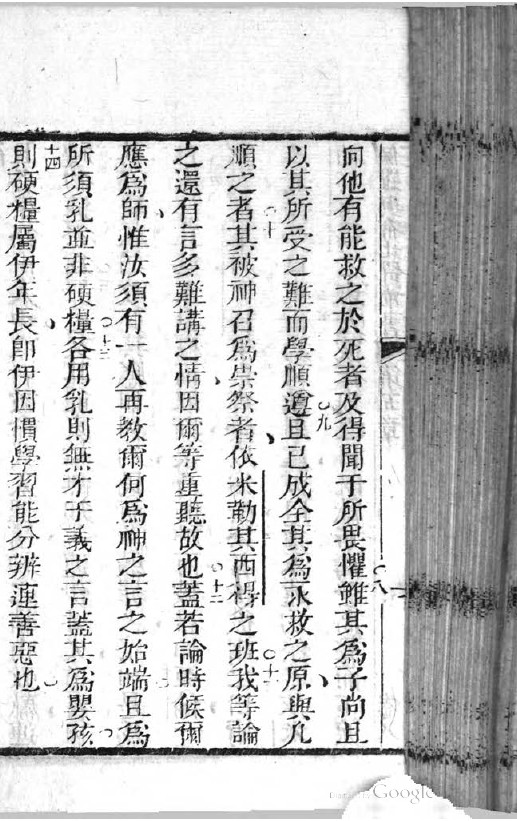 向他有能救之於死者及得聞于所畏懼○八雖其為子尚且
以其所受之難而學順遵○九且已成全其為永救之原與凡
順之者○十其被神召為崇祭者依米勒其西得之班○十一我等論
之還有言多難講之情因爾等重聽故也○十二蓋若論時候爾
應為師惟汝須有一人再教爾何為神之言之始端且為
所須乳並非硬糧○十三各用乳則無才于義之言蓋其為嬰孩
十四則硬糧屬伊年長即伊因慣學習能分辨連善惡也
Google